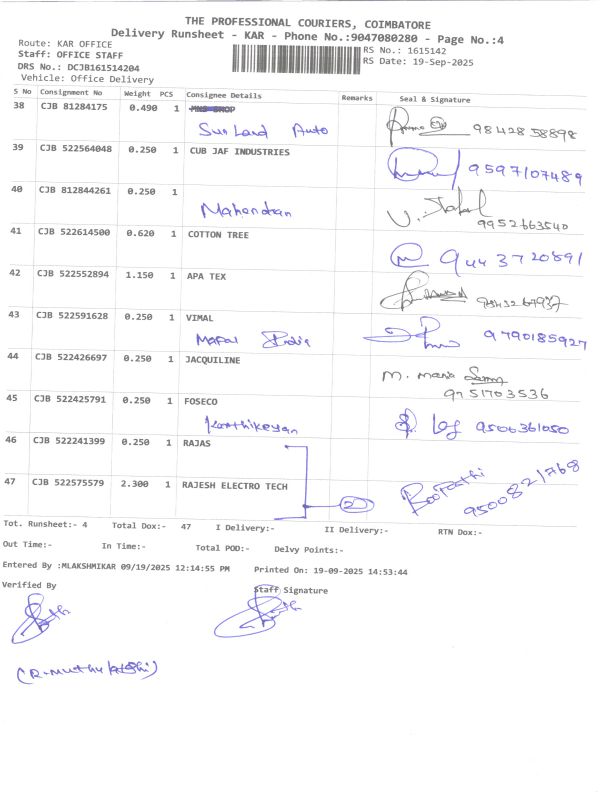 THE PROFESSIONAL COURIERS, COIMBATORE
Delivery Runsheet - KAR - Phone No.:9047080280 - Page No.:4
Route: KAR OFFICE
Staff: OFFICE STAFF
DRS No.: DCJB161514204
Vehicle: Office Delivery
RS No.: 1615142
RS Date: 19-Sep-2025
S No Consignment No Weight PCS Consignee Details Remarks Seal & Signature
38 CJB 81284175 0.490 1
Sun Land Auto 98428 58898
39 CJB 522564048 0.250 1 CUB JAF INDUSTRIES
9597107489
40 CJB 812844261 0.250 1
Mahendran 9952663540
41 CJB 522614500 0.620 1 COTTON TREE
944 37 20891
42 CJB 522552894 1.150 1 APA TEX
43 CJB 522591628 0.250 1 VIMAL
Mapal India 9790185927
44 CJB 522426697 0.250 1 JACQUILINE
M. Maria
9751703536
45 CJB 522425791 0.250 1 FOSECO
Karthikeyan 9500361050
46 CJB 522241399 0.250 1 RAJAS
47 CJB 522575579 2.300 1 RAJESH ELECTRO TECH
2 Boopathi 9500821768
Tot. Runsheet:- 4 Total Dox:- 47 I Delivery:- II Delivery:- RTN Dox:-
Out Time:- In Time:- Total POD:- Delvy Points:-
Entered By :MLAKSHMIKAR 09/19/2025 12:14:55 PM Printed On: 19-09-2025 14:53:44
Verified By Staff Signature